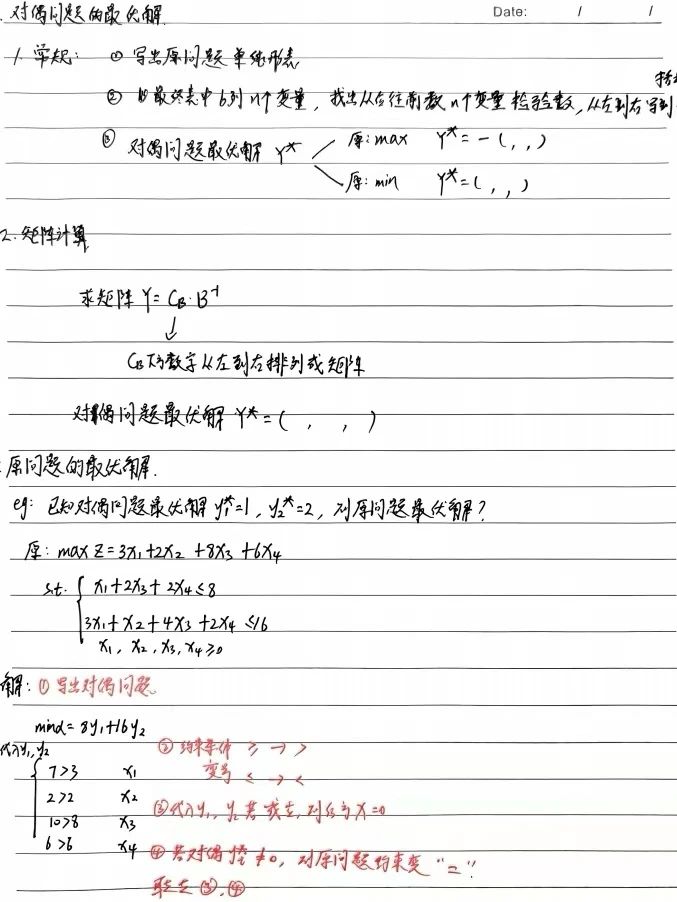 对偶问题的最优解
Date: / /
1. 常规: ① 写出原问题单纯形表
② 最终表中b列n个变量, 找出从右往前数n个变量检验数, 从左到右写到
③ 对偶问题最优解 Y* 原: max Y*=-( , , )
原: min Y*=( , , )
2. 矩阵计算
求矩阵 Y=C_B·B⁻¹
↓
C_B下的数字从左到右排列成矩阵
对偶问题最优解 Y*=( , , )
原问题的最优解.
eg: 已知对偶问题最优解 y₁*=1, y₂*=2, 则原问题最优解?
原: max Z=3x₁+2x₂+8x₃+6x₄
s.t. { x₁+2x₃+2x₄≤8
3x₁+x₂+4x₃+2x₄≤16
x₁, x₂, x₃, x₄≥0
解: ① 写出对偶问题
min d=8y₁+16y₂
代入y₁, y₂
② 约束条件 ≥ → >
变号 ≤ → <
7>3 x₁
2>2 x₂
③ 代入y₁, y₂ 若成立, 则 x=0
10>8 x₃
6>6 x₄
④ 若对偶 ≠0, 对原问题约束变 "="
联立③, ④